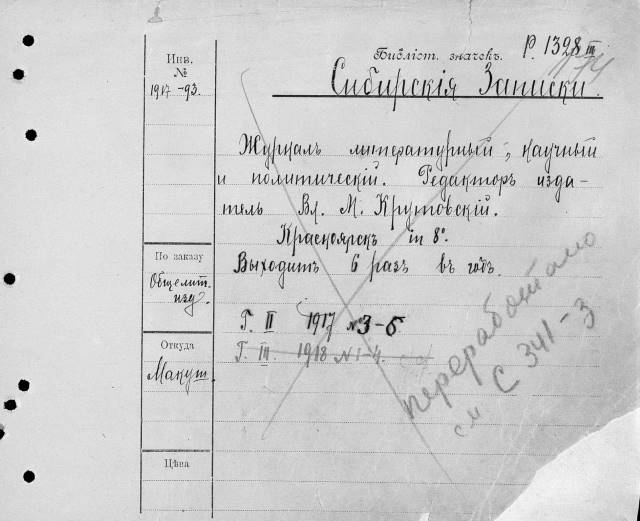 Инв.
№
1917-93.
Библіот. значекъ. Р. 1328 III
174
Сибирскія Записки.
Журналъ литературный, научный
и политическій. Редакторъ изда-
тель Вл. М. Крутовскій.
Красноярскъ in 8°.
Выходитъ 6 разъ въ годъ.
По заказу
Общелит.
изд.
Г. II 1917 №3-6
Г. III 1918 №1-4.
Откуда
Макуш.
Цѣна
переработано
см С 341-3